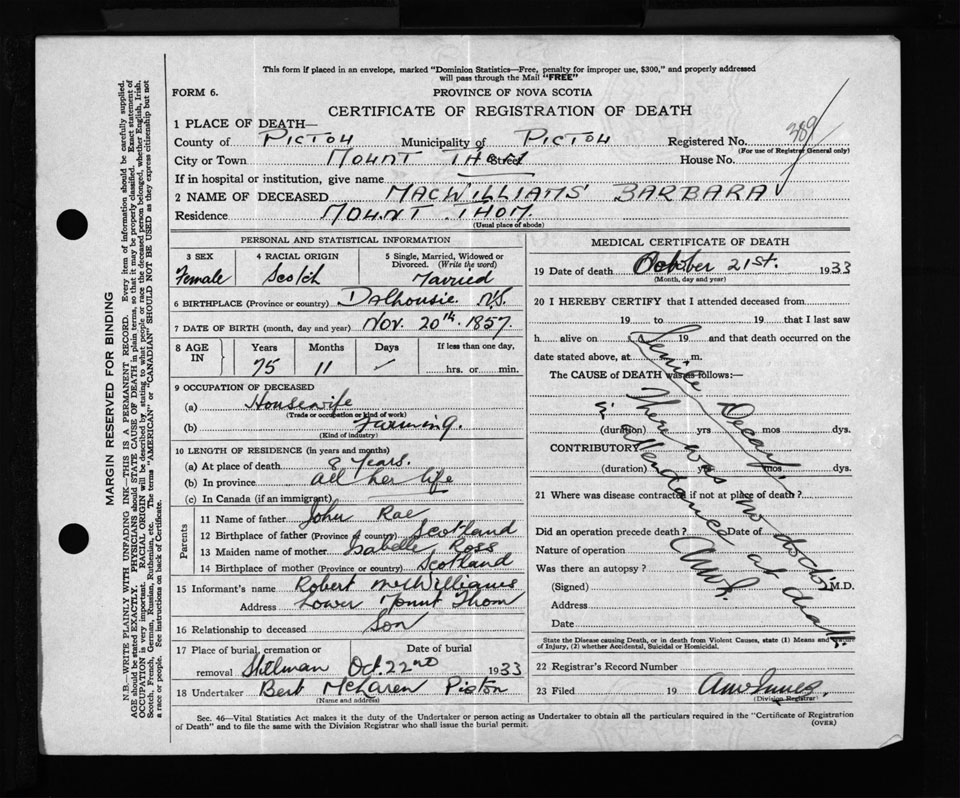 This form if placed in an envelope, marked "Dominion Statistics—Free, penalty for improper use, $300," and properly addressed
will pass through the Mail "FREE"
FORM 6.
PROVINCE OF NOVA SCOTIA
CERTIFICATE OF REGISTRATION OF DEATH
389
1 PLACE OF DEATH—
County of PICTOU Municipality of PICTOU Registered No.
(For use of Registrar General only)
City or Town MOUNT THOM Street House No.
If in hospital or institution, give name
2 NAME OF DECEASED MACWILLIAMS' BARBARA
Residence MOUNT THOM.
(Usual place of abode)
PERSONAL AND STATISTICAL INFORMATION
3 SEX 4 RACIAL ORIGIN 5 Single, Married, Widowed or
Divorced. (Write the word)
Female Scotch Married
6 BIRTHPLACE (Province or country) Dalhousie N.S.
7 DATE OF BIRTH (month, day and year) Nov. 20th. 1857.
8 AGE IN Years Months Days If less than one day,
75 11 ✓ hrs. or min.
9 OCCUPATION OF DECEASED
(a) Housewife
(Trade or occupation or kind of work)
(b) Farming.
(Kind of industry)
10 LENGTH OF RESIDENCE (in years and months)
(a) At place of death 8 years.
(b) In province all her life
(c) In Canada (if an immigrant)
Parents
11 Name of father John Rae
12 Birthplace of father (Province or country) Scotland
13 Maiden name of mother Isabelle Ross
14 Birthplace of mother (Province or country) Scotland
15 Informant's name Robert McWilliams
Address Lower Mount Thom
16 Relationship to deceased Son
17 Place of burial, cremation or Date of burial
removal Stillman Oct. 22nd 1933
18 Undertaker Bert McLaren Pictou
(Name and address)
MEDICAL CERTIFICATE OF DEATH
19 Date of death October 21st. 1933
(Month, day and year)
20 I HEREBY CERTIFY that I attended deceased from
19 to 19 that I last saw
h alive on 19 and that death occurred on the
date stated above, at m.
The CAUSE of DEATH was as follows:—
(duration) yrs mos dys.
CONTRIBUTORY
(duration) yrs mos dys.
Senile Decay.
There was no doctor
in attendance at death.
21 Where was disease contracted if not at place of death?
Did an operation precede death? Date of
Nature of operation
Was there an autopsy?
(Signed) M.D.
Address
Date
State the Disease causing Death, or in death from Violent Causes, state (1) Means and Nature
of Injury, (2) whether Accidental, Suicidal or Homicidal.
22 Registrar's Record Number
23 Filed 19 AW Innes.
(Division Registrar)
Sec. 46—Vital Statistics Act makes it the duty of the Undertaker or person acting as Undertaker to obtain all the particulars required in the "Certificate of Registration
of Death" and to file the same with the Division Registrar who shall issue the burial permit. (OVER)
MARGIN RESERVED FOR BINDING
N.B.—WRITE PLAINLY WITH UNFADING INK—THIS IS A PERMANENT RECORD. Every item of information should be carefully supplied.
AGE should be stated EXACTLY. PHYSICIANS should STATE CAUSE OF DEATH in plain terms, so that it may be properly classified. Exact statement of
OCCUPATION is very important. RACIAL ORIGIN will be described by stating to what people or race the deceased person belonged, whether English, Irish,
Scotch, French, German, Russian, Ruthenian, etc. The terms "AMERICAN" or "CANADIAN" SHOULD NOT BE USED as they express citizenship but not
a race or people. See instructions on back of Certificate.